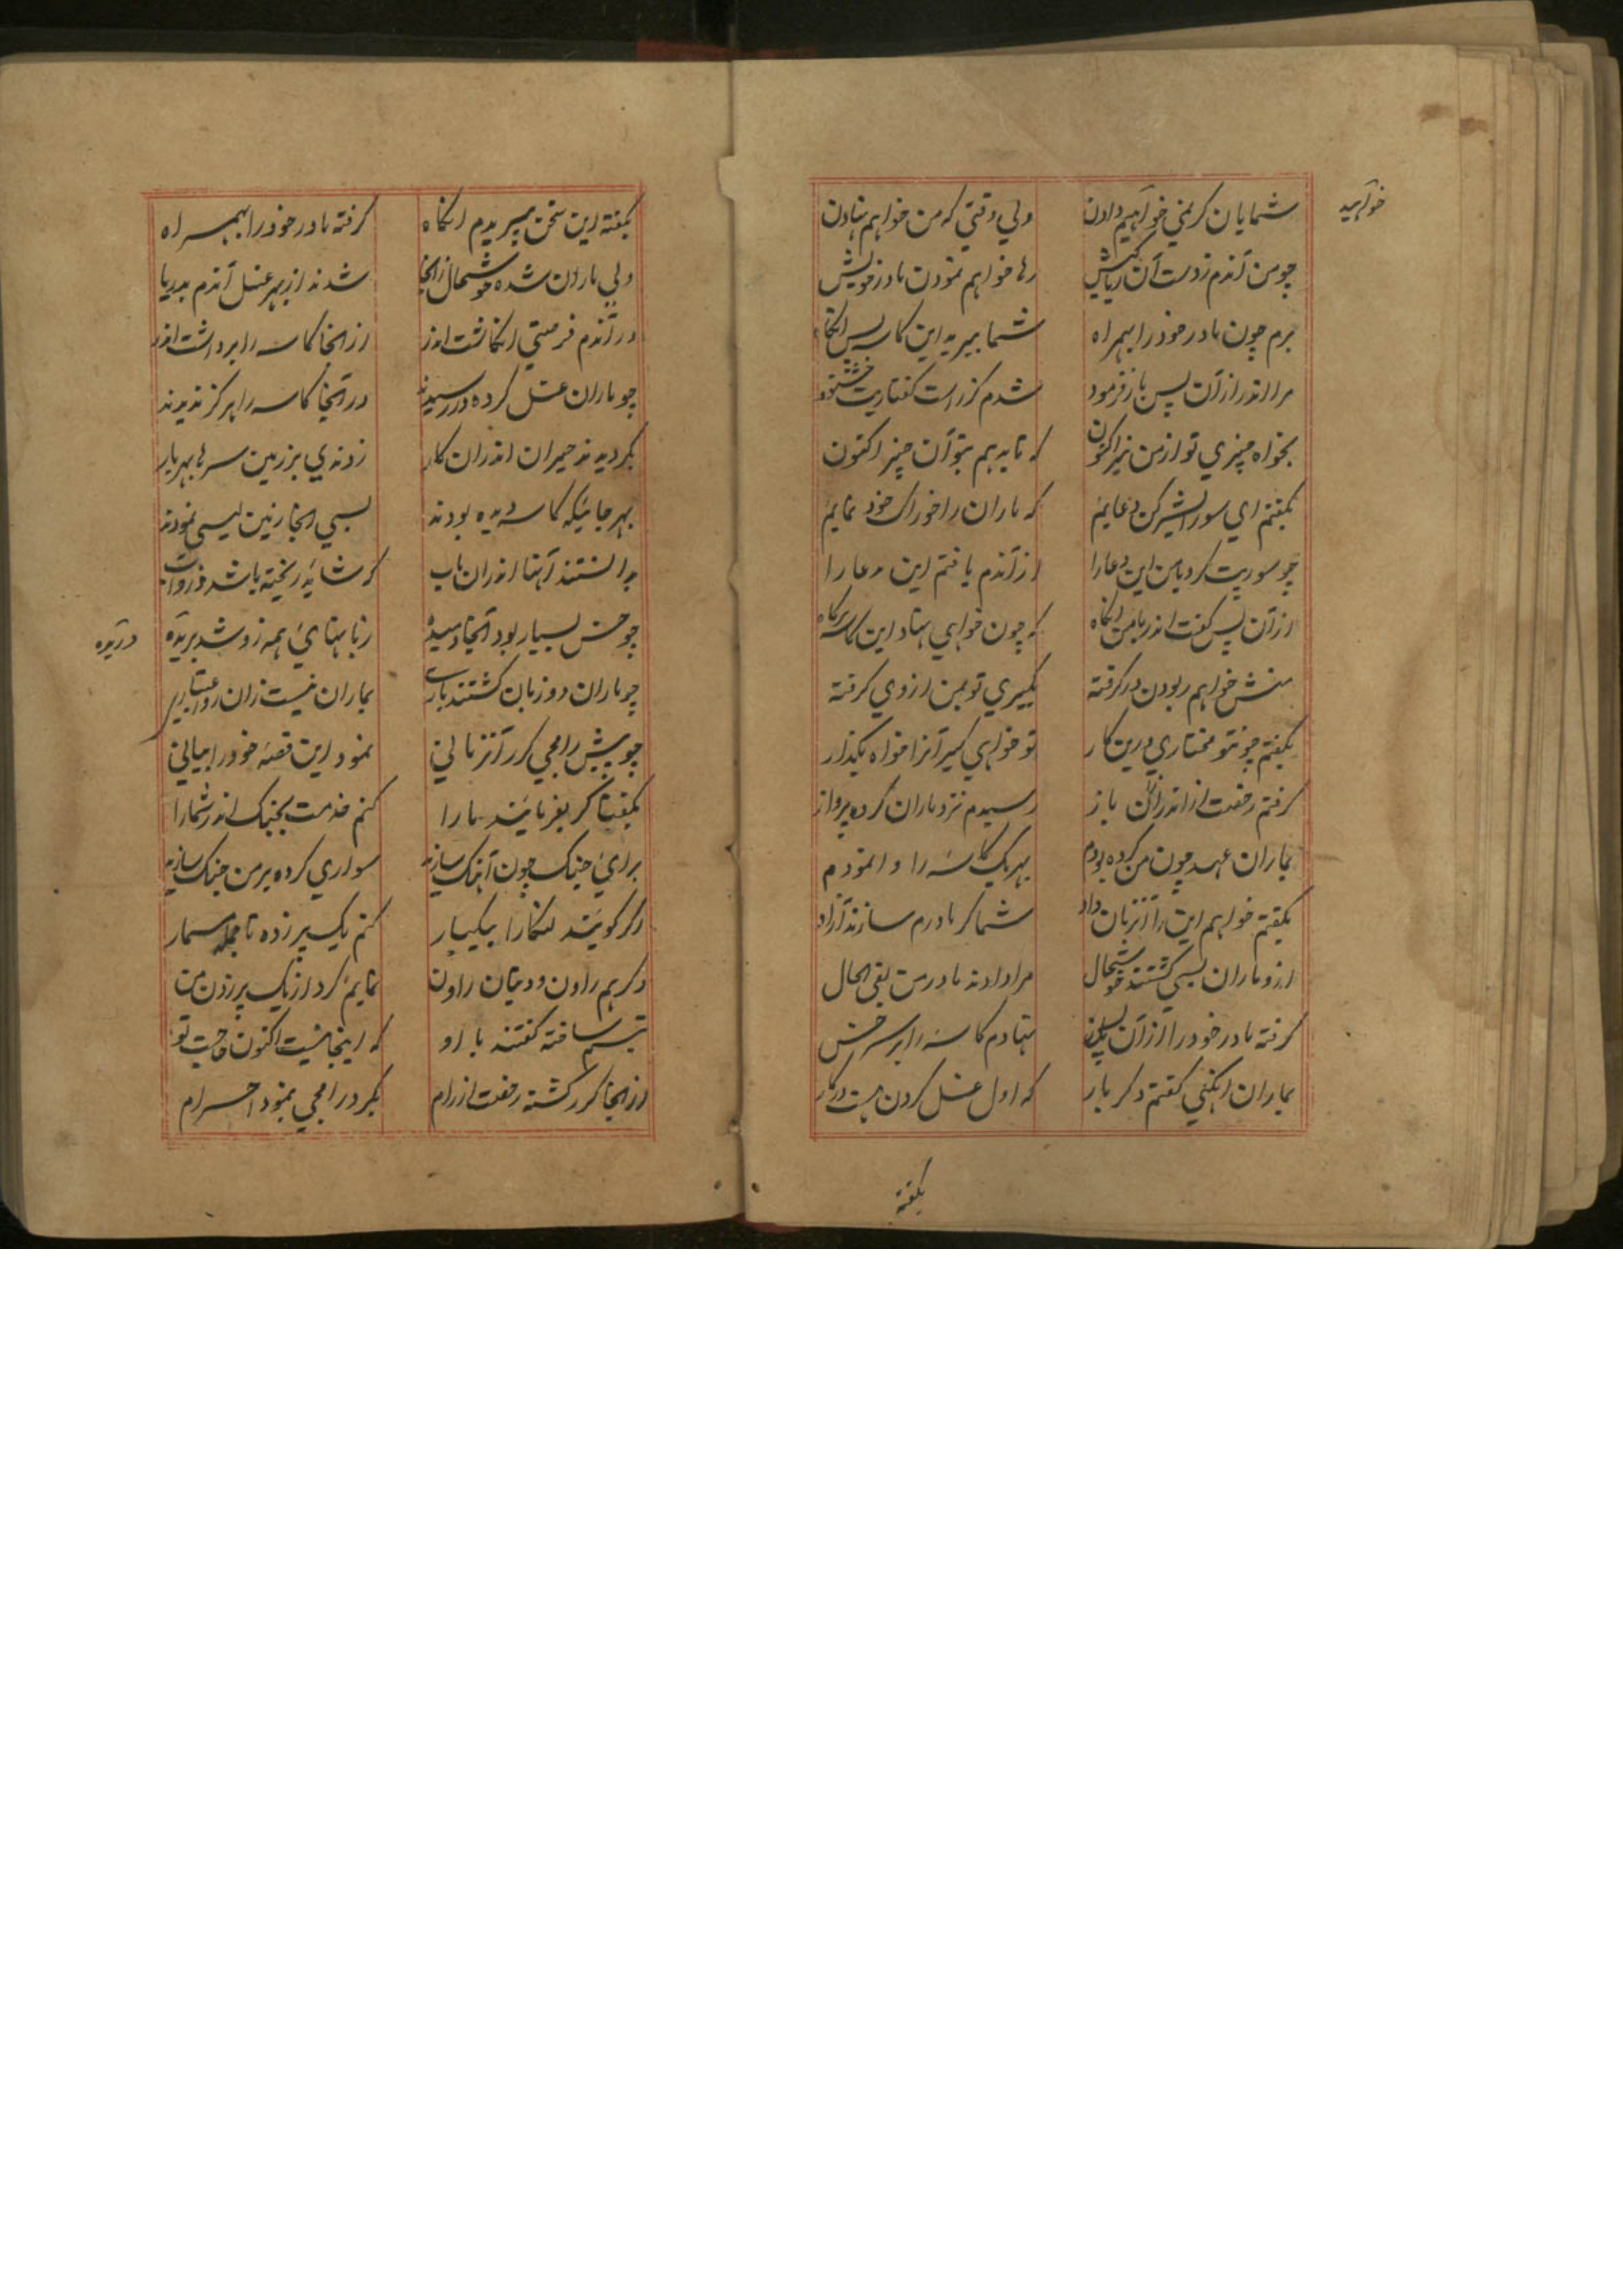 خواهید
شمایان گر نمی خواهیم دادن ولی وقتی که من خواهم نهادن
چو من آندم ز دست آن رها خواهم نمودن مادر خویش
برم چون مادر خود را بهمراه شما ببرید این کاسه آنگاه
مرا اندر از آن پس باز فرمود شدم کز راست گفتاریت خوشنود
بخواه چیزی تو از من نیز اکنون که تا بدهم بتو آن چیز اکنون
بگفتم ای سورایشر کن دعایم که ماران را خوراک خود نمایم
چو سوریت کرد با من این دعا را از آندم یافتم این مدعا را
از آن پس گفت اندر با من آنگاه که چون خواهی نهاد این کاسه
منش خواهم ربودن در گرفته نگیری تو بمن از وی گرفته
بگفتم چونتو مختاری درین کار تو خواهی گیر آنرا خواه بگذار
گرفته رخصت از اندر از آن باز رسیدم نزد ماران کرده پرواز
بماران عهد چون من کرده بودم بهر یک کاسه را وانمودم
بگفتم خواهم این را آنزمان داد شما گر مادرم سازند آزاد
ازو ماران بسی گشتند خوشحال مرا دادند مادر من بفی الحال
گرفته مادر خود را از آن پس نهادم کاسه را بر سر خس
بماران گفتم دگر بار که اول غسل کردن هست درکار
بگفته
بگفته این سخن بپریدم آنگاه گرفته مادر خود را بهمراه
ولی ماران شده خوشحال ز آنجا شدند از بهر غسل آندم بدریا
در آندم فرصتی انگاشت اندر از آنجا کاسه را برداشت اندر
چو ماران غسل کرده در رسیدند در آنجا کاسه را هرگز ندیدند
بگردیدند حیران اندران کار زدندی بر زمین سرها بهر بار
بهر جائیکه کاسه دیده بودند بسی آنجا زمین لیسی نمودند
بدانستند آنها اندران باب که شاید ریخته باشد
چو خس بسیار بود آنجا زبانهای همه زو شد بریده
دریده
چو ماران دو زبان گشتند بماران نیست زان
چو پیش رامجی گرر آنزمانی نمود این قصه خود را بیانی
بگفتا گر بفرمایند ما را کنم خدمت بجنگ اندر شما را
برای جنگ چون آهنگ سازند سواری کرده بر من جنگ سازند
اگر گویند لنکا را بیکبار کنم یک پر زده تا جمله مسمار
دگر هم راون و دیوان راون نمایم گرد از یک پر زدن من
تبسم ساخته گفتند با او که اینجا نیست اکنون حاجت تو
از آنجا گرر گشته رخصت از رام بگرد رامجی بنمود احرام